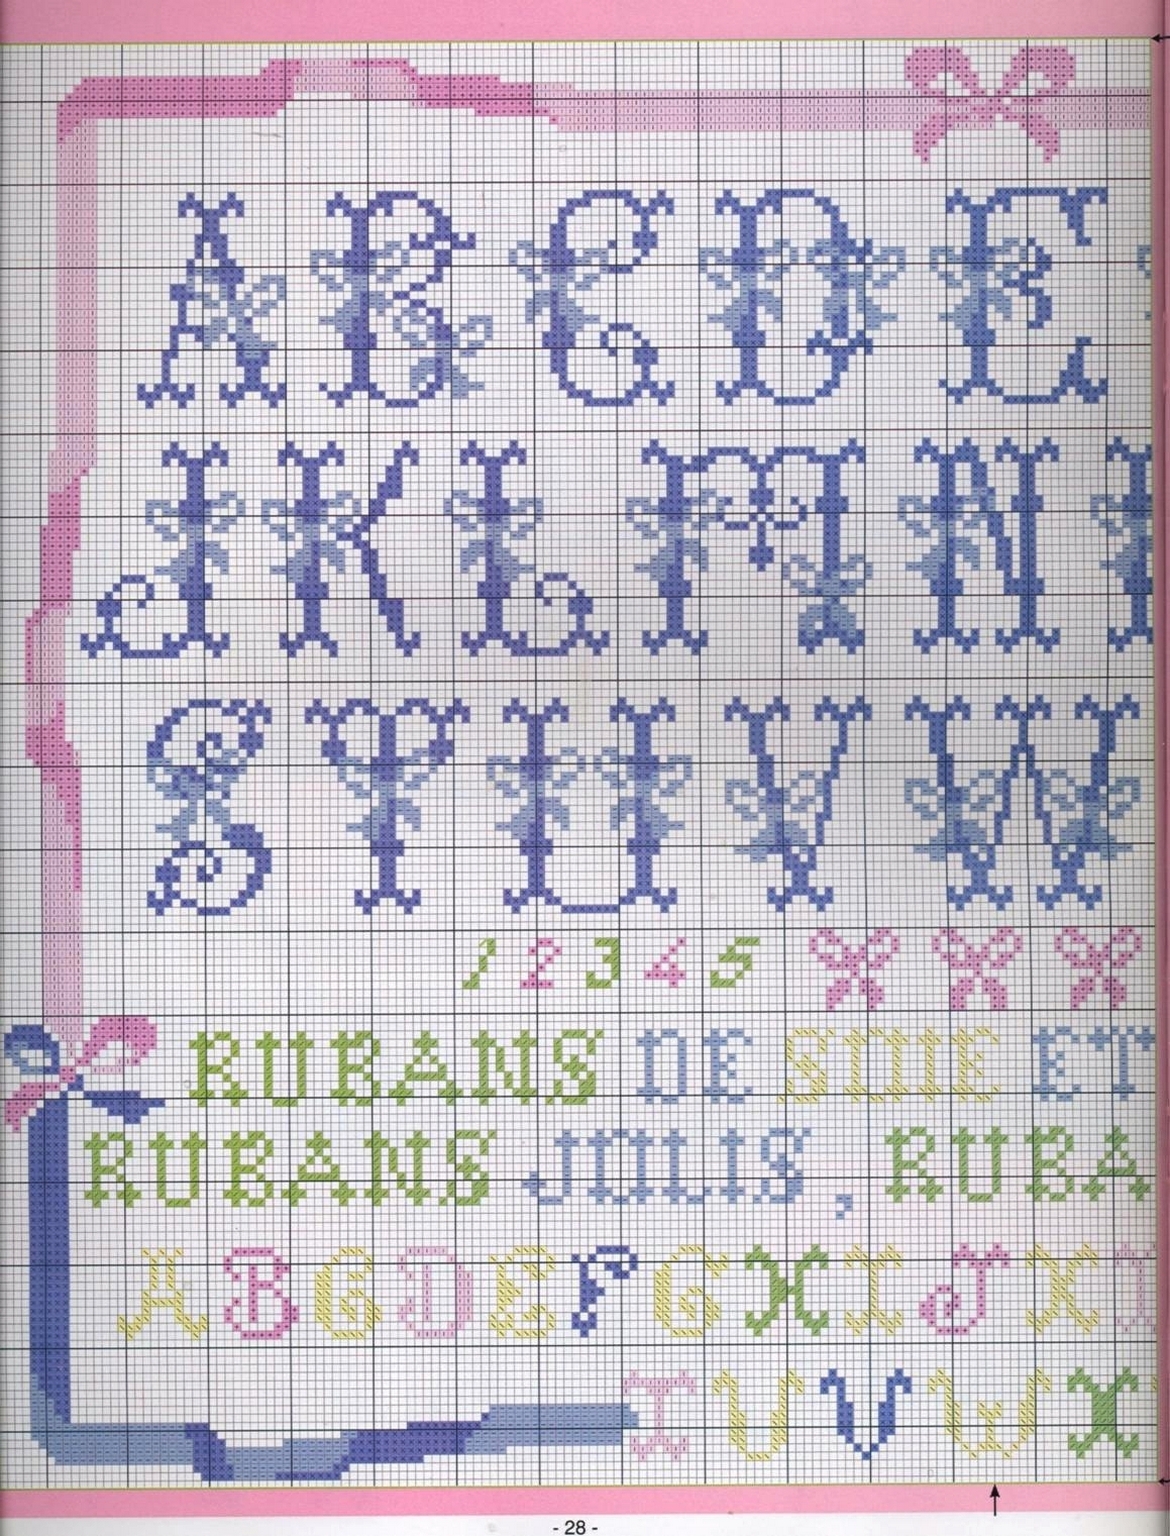 A B C D E
J K L M N
S T U V W
1 2 3 4 5
RUBANS DE SOIE ET
RUBANS JOLIS, RUBA
A B C D E F G H I J K
T U V W X
- 28 -